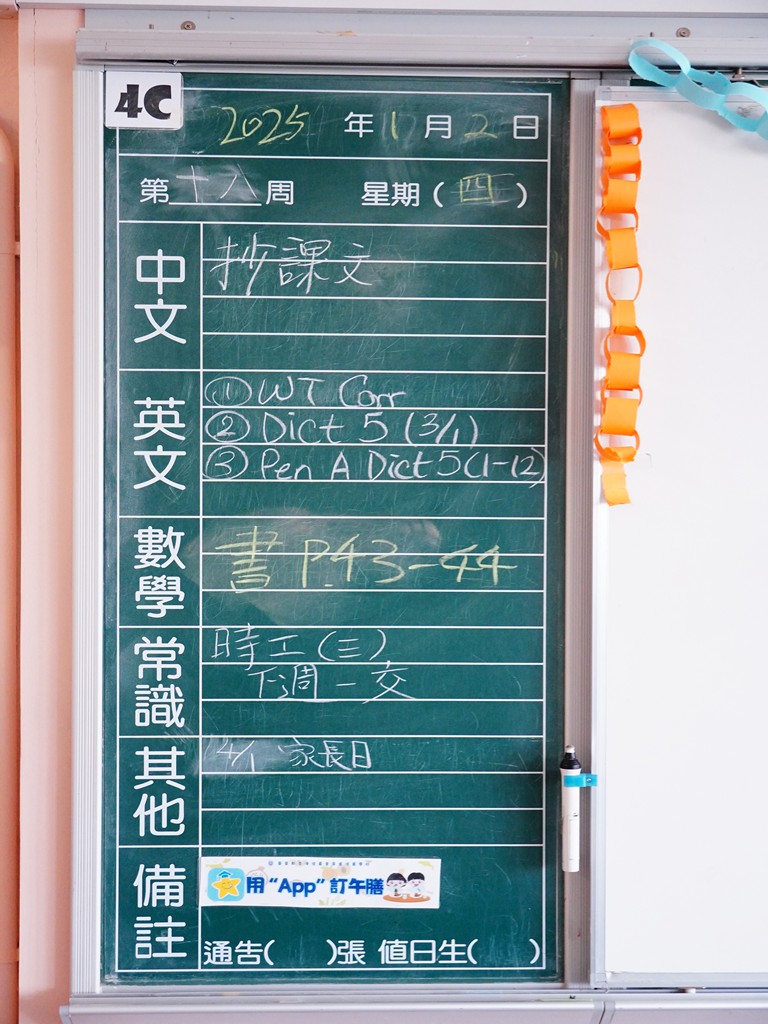 4C
2025 年 1 月 2 日
第十八周 星期(四)
中文
抄課文
英文
① WT Corr
② Dict 5 (3/1)
③ Pen A Dict 5 (1-12)
數學
書 P.43-44
常識
時工(三)
下週一交
其他
4/1 家長日
備註
用“App”訂午膳
通告( )張 值日生( )